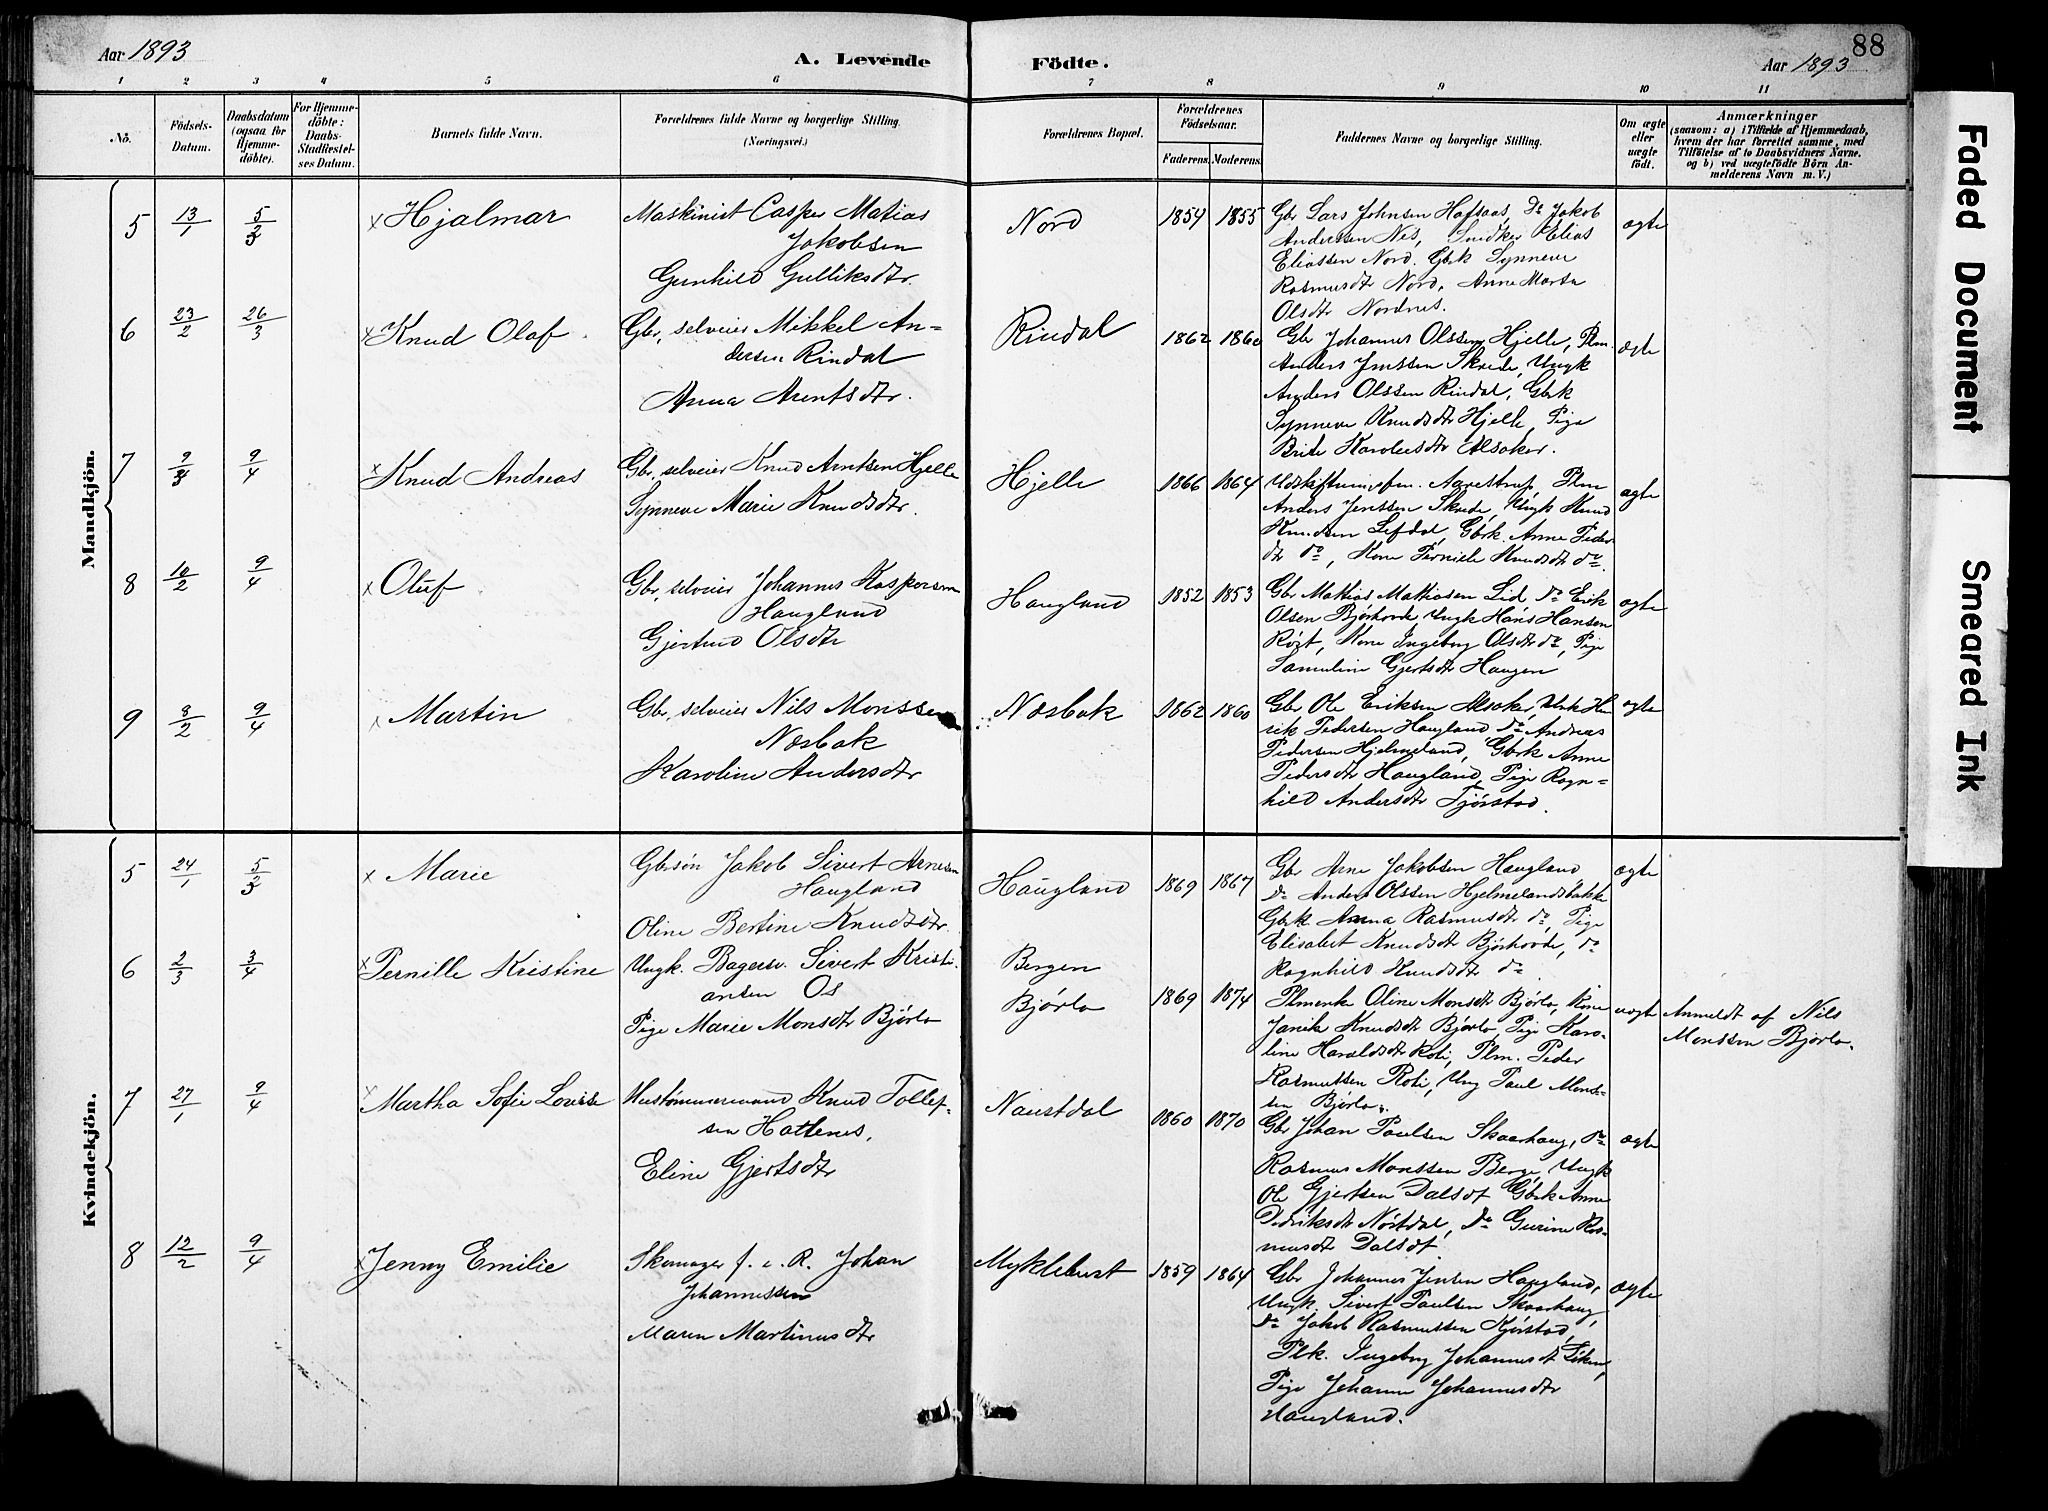 Aar 1893
A. Levende
Födte.
Aar 1893
88
1 2 3 4 5 6 7 8 9 10 11
Nö.
Födsels-
Datum.
Daabsdatum
(ogsaa for
Hjemme-
döbte).
For Hjemme-
döbte:
Daabs-
Stadfæstel-
ses Datum.
Barnets fulde Navn.
Forældrenes fulde Navne og borgerlige Stilling.
(Næringsvei.)
Forældrenes Bopæl.
Forældrenes
Födselsaar.
Faderens. Moderens.
Faddernes Navne og borgerlige Stilling.
Om ægte
eller
uægte
födt.
Anmærkninger
(saasom: a) i Tilfælde af Hjemmedaab,
hvem der har forrettet samme, med
Tilföielse af to Daabsvidners Navne.
og b) ved uægtefödte Börn An-
melderens Navn m. V.)
Mandkjön.
5 13/1 5/3 x Hjalmar
Maskinist Casper Matias
Jakobsen
Gunhild Gulliksdtr.
Nord 1854 1855
Gbr Lars Johnsen Hafsaas, Do Jakob
Anderssen Nes, Snidker Elias
Eliassen Nord. Gbrk Synneve
Rasmusdtr Nord, Anne Marta
Olsdtr Nordnes.
ægte
6 23/2 26/3 x Knud Olaf
Gbr, selveier Mikkel An-
dersen Rindal
Anna Arentsdtr.
Rindal 1862 1860
Gbr Johannes Olssen Hjelle, Plm.
Anders Jenssen Skrede, Ungk
Anders Olssen Rindal, Gbrk
Synneve Knudsdtr Hjelle, Pige
Brite Karolusdtr Alsaker.
ægte
7 9/3 9/4 x Knud Andreas
Gbr, selveier Knud Arntsen Hjelle
Synneve Marie Knudsdtr.
Hjelle 1866 1864
Udskiftningsfm. Aarestrup, Plm
Anders Jenssen Skrede, Ungk Knud
Knudsen Lefdal, Gbrk. Anne Peder
dtr do, Kone Pernille Knudsdtr do.
ægte
8 10/2 9/4 x Oluf
Gbr, selveier Johannes Kaspersen
Haugland
Gjertrud Olsdtr
Haugland 1852 1853
Gbr Matias Mathiasen Lid, do Erik
Olsen Bjørhovde, Ungk Hans Hansen
Kone Ingeborg Olsdtr do, Pige
Samuline Gjertsdtr Haugen
ægte
9 8/2 9/4 x Martin
Gbr, selveier Nils Monssen
Næsbak
Karoline Andersdtr
Næsbak 1862 1860
Gbr Ole Eriksen Alsaker, Ungk Hen
rik Pedersen Haugland do Andreas
Pedersen Hjelmeland, Gbrk Anne
Pedersdtr Haugland, Pige Ragn=
hild Andersdtr Fjørstad.
ægte
Kvindekjön.
5 24/1 5/3 x Marie
Gbrsøn Jakob Sivert Arnesen
Haugland
Oline Bertine Knudsdtr.
Haugland 1869 1867
Gbr Arne Jakobsen Haugland,
do Anders Olssen Hjelmelandsbakke
Gbrk Anna Rasmusdtr do, Pige
Elisabet Knudsdtr Bjørhovde, do
Ragnhild Knudsdtr do
ægte
6 2/3 3/4 x Pernille Kristine
Ungk. Bagersv. Sivert Kristi-
ansen Os
Pige Marie Monsdtr Bjørlo
Bergen
Bjørlo 1869 1874
Plmenke Oline Monsdtr Bjørlo, Kone
Janike Knudsdtr Bjørlo, Pige Karo-
line Haraldsdtr Roti, Plm. Peder
Rasmussen Roti, Ung Paul Mons-
sen Bjørlo.
uægte Anmeldt af Nils
Monssen Bjørlo.
7 27/1 9/4 x Martha Sofie Lovise
Hustømmermand Knud Tollef-
sen Hattenes,
Eline Gjertsdtr
Naustdal 1860 1870
Gbr Johan Paulsen Skaarhaug, do
Rasmus Monssen Berge, Ungk
Ole Gjertsen Dalsdt, Gbrk Anne
Didriksdtr Nøstdal, do Gurine Ras-
musdtr Dalsdt.
ægte
8 12/2 9/4 x Jenny Emilie
Skomager f. e. R. Johan
Johannessen
Maren Martinusdtr
Myklebust 1859 1864
Gbr Johannes Jensen Haugland,
Ungk. Sivert Paulsen Skaarhaug,
do Jakob Rasmussen Kjørstad,
Plk. Ingeborg Johannesdt
Pige Johanne Johannesdtr
Haugland.
ægte
Faded Document
Smeared Ink